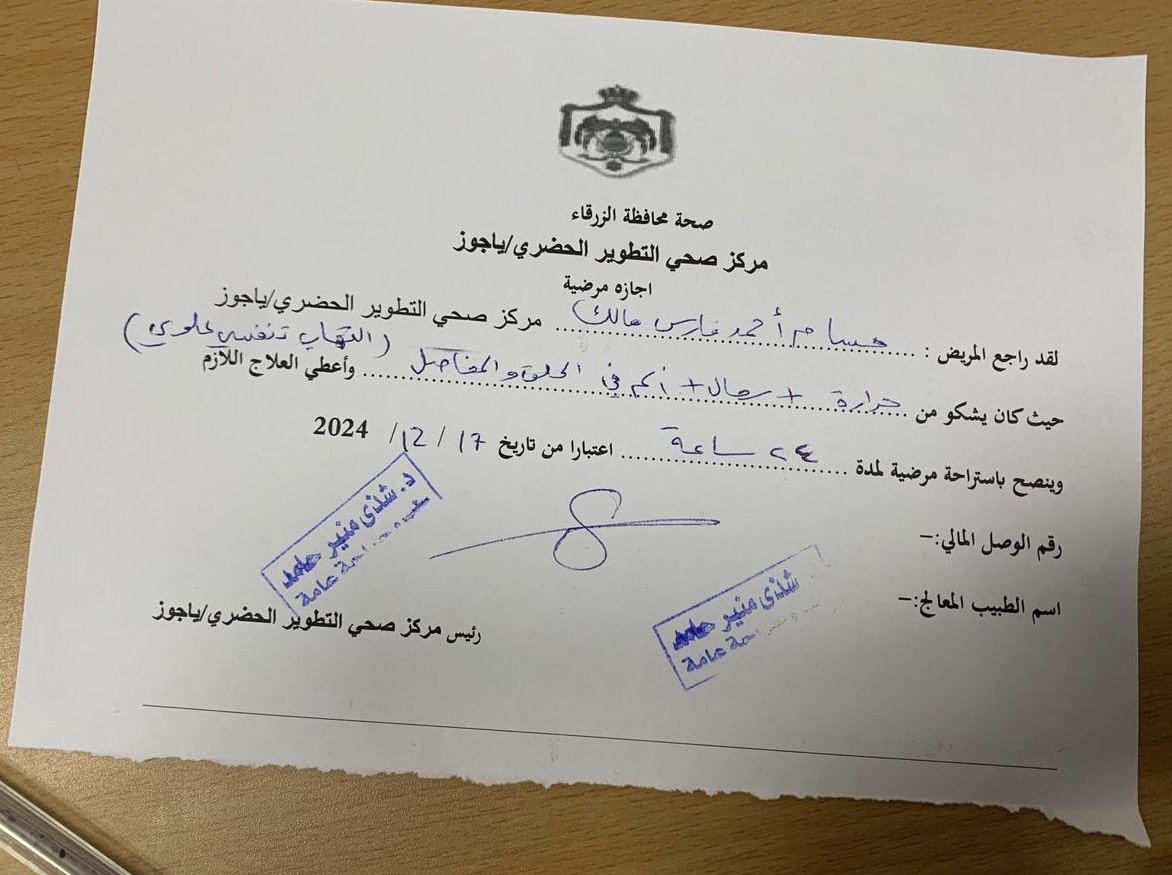 صحة محافظة الزرقاء
مركز صحي التطوير الحضري/ياجوز
اجازه مرضية
لقد راجع المريض : حسام أحمد فارس مالك مركز صحي التطوير الحضري/ياجوز
(التهاب تنفسي علوي)
حيث كان يشكو من حرارة + سعال + ألم في الحلق والمفاصل وأعطي العلاج اللازم
وينصح باستراحة مرضية لمدة ٢٤ ساعة اعتبارا من تاريخ ١٧ / 12/ 2024
رقم الوصل المالي:–
اسم الطبيب المعالج:–
د. شذى منير حامد
عامة
شذى منير حامد
عامة
رئيس مركز صحي التطوير الحضري/ياجوز